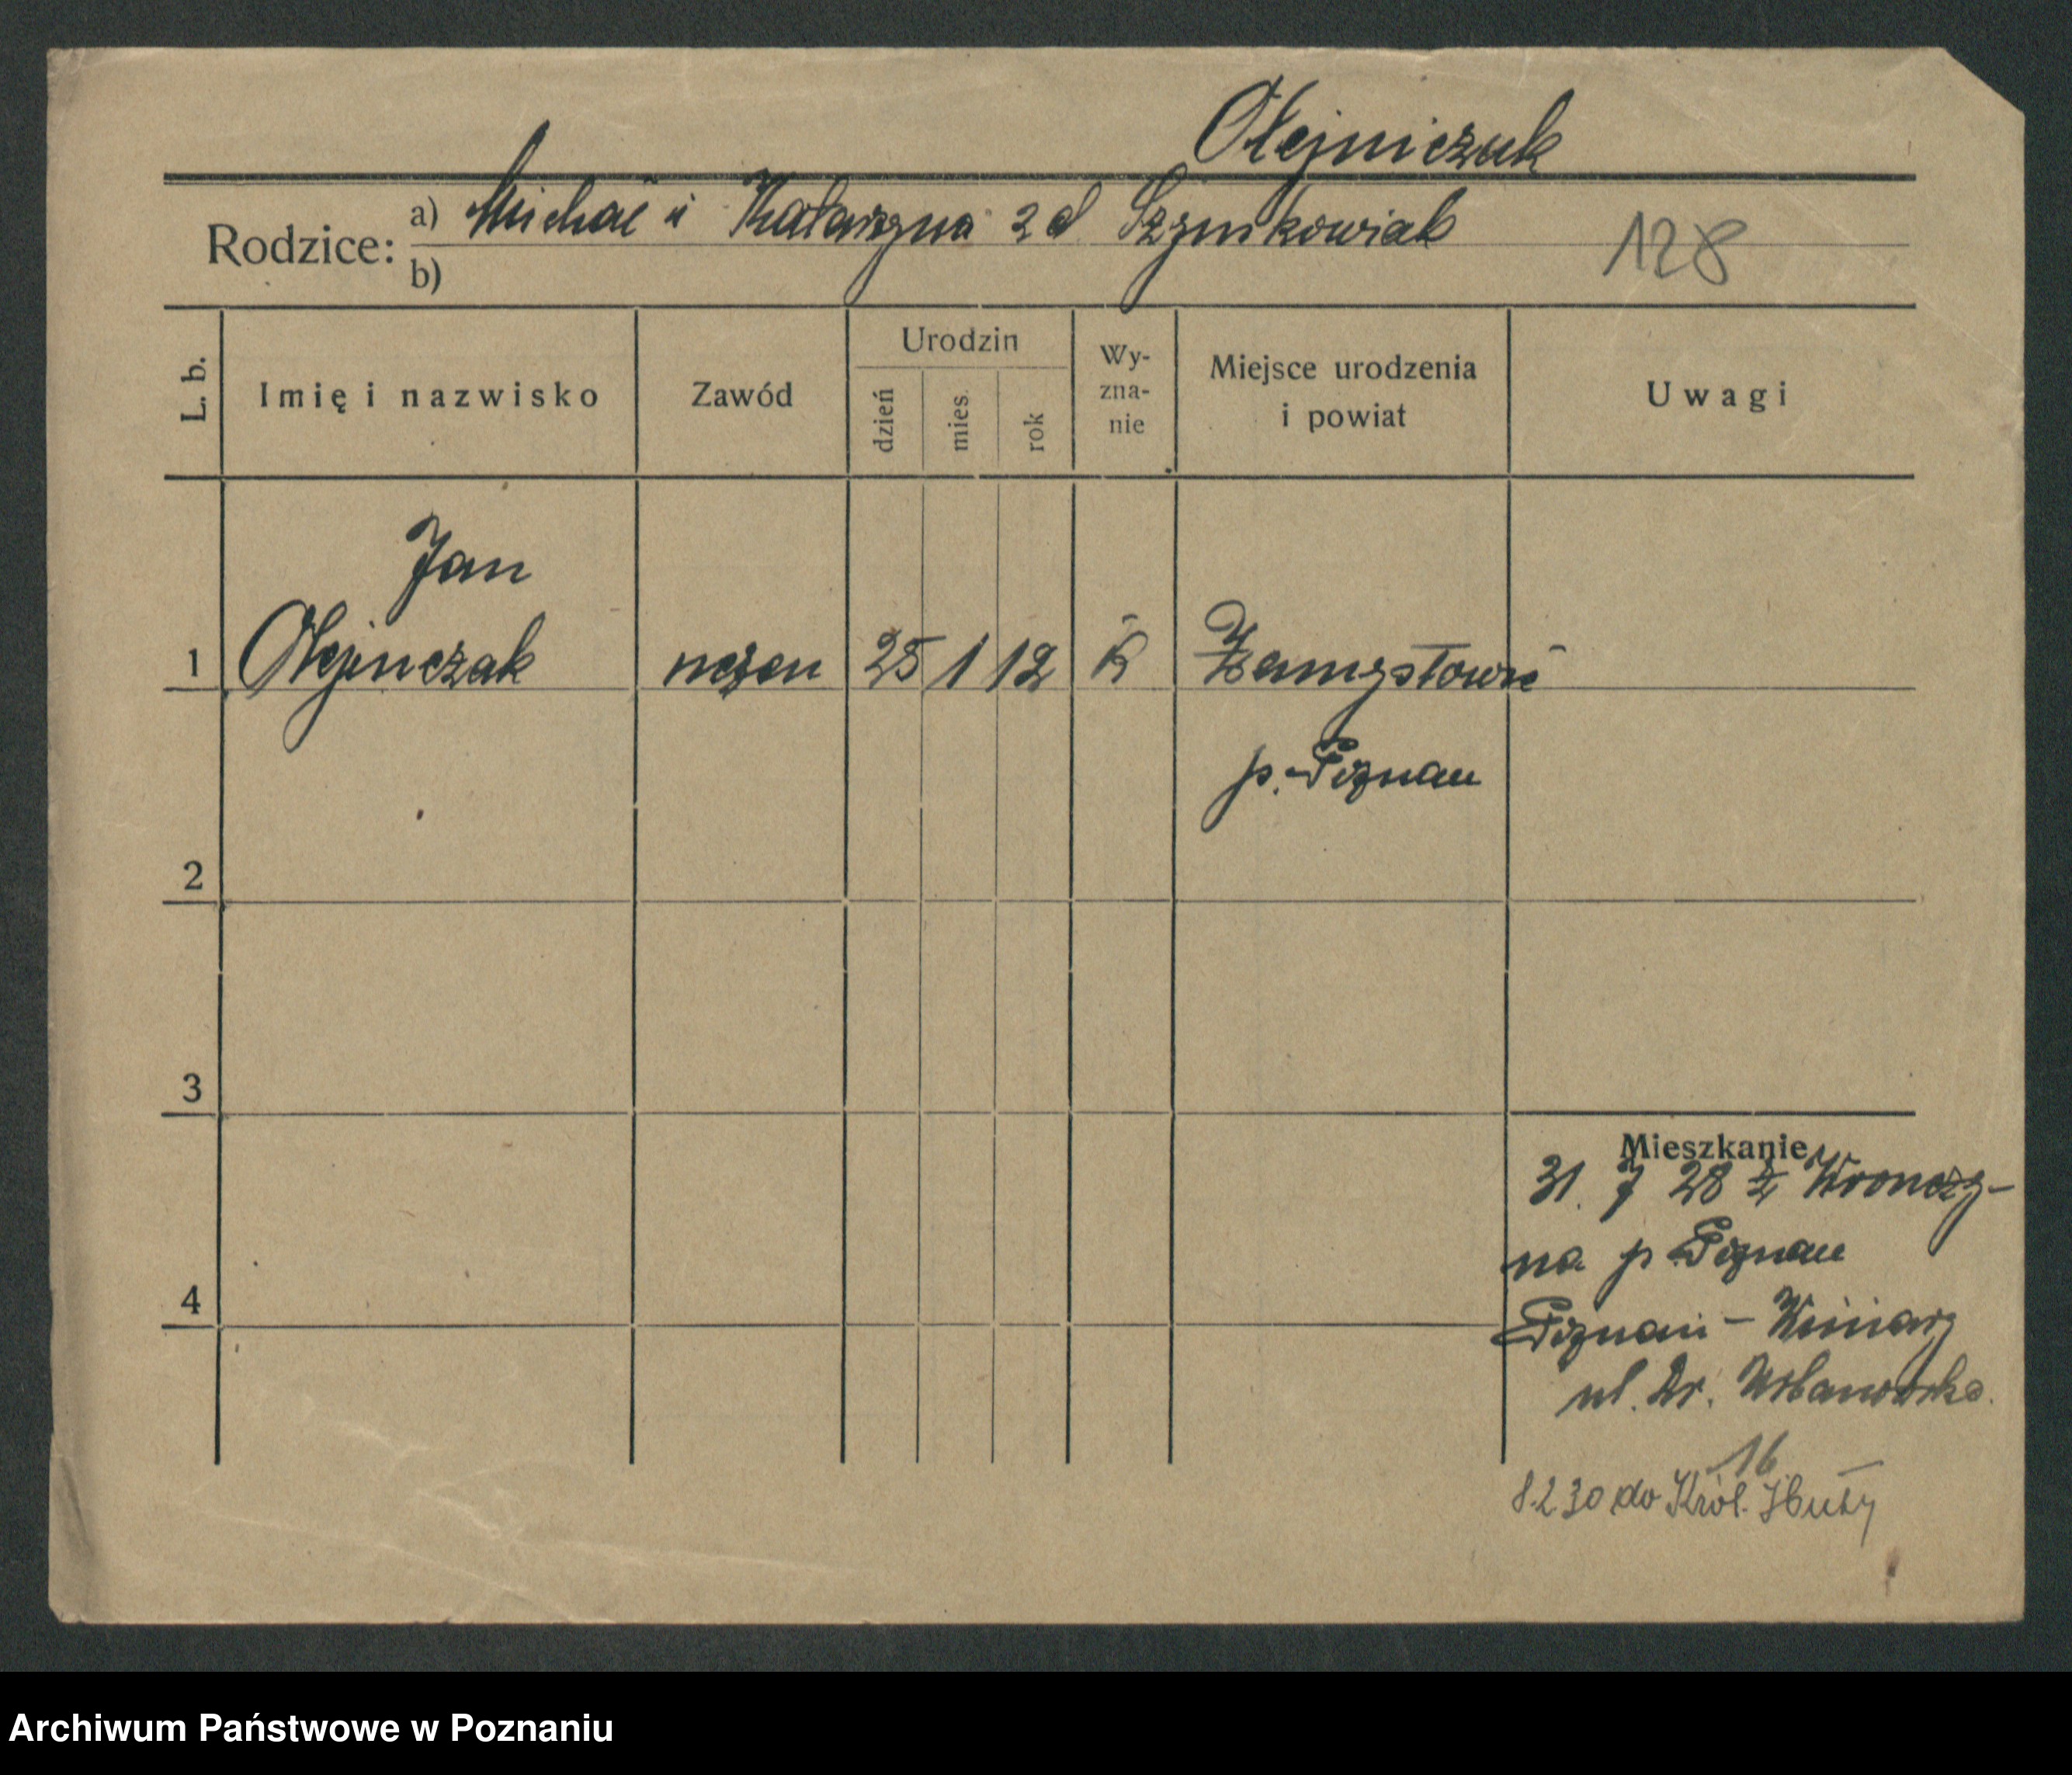 Olejniczak
Rodzice: a) Michał i Katarzyna z d Szymkowiak
b)
128
L. b.
Imię i nazwisko
Zawód
Urodzin
dzień
mies.
rok
Wy-
zna-
nie
Miejsce urodzenia
i powiat
Uwagi
Jan
1 Olejniczak uczeń 25 1 12 K
p. Poznań
2
3
4
Mieszkanie
31. 7 28 z Wronczy-
na p Poznań
Poznań - Winiary
ul. Dr.
16
8.2 30 do Król. Huty
Archiwum Państwowe w Poznaniu